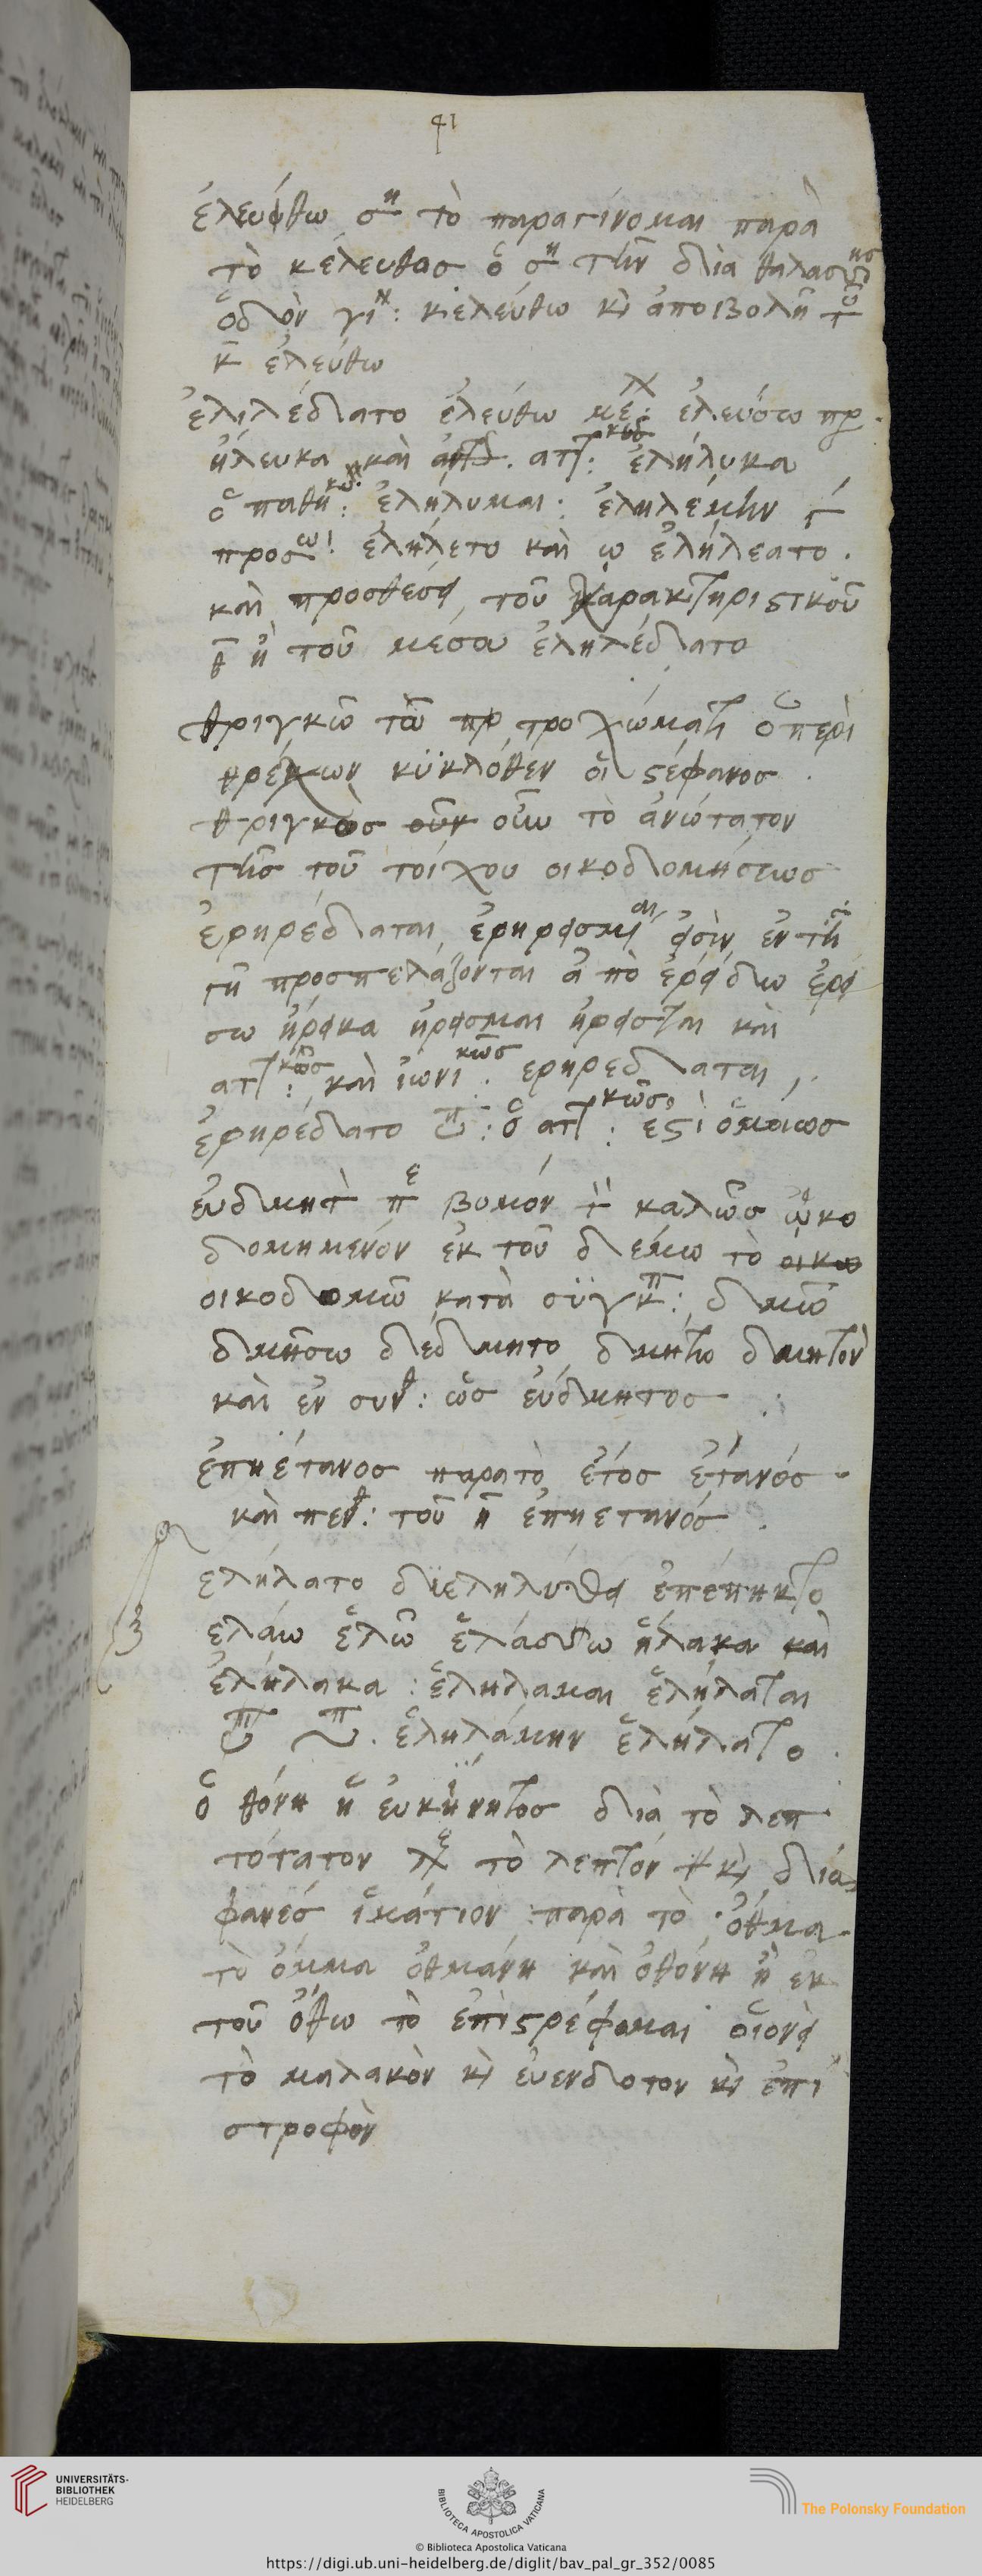 41
ἐλευθω ση τὸ παραγίνομαι παρὰ
τὸ κέλευθος ὃ ση τὴν διὰ θαλασσης
ὁδὸν γι: κελεύθω κ ἀποβολῆ τοῦ
κ ἐλεύθω
ἐληλέδατο ἐλεύθω μέ: ἐλεύσω πρ
ἤλευκα καὶ ἀττ: ἐλήλυκα
ὁ παθη: ἐλήλυμαι: ἐληλέμην
προσω: ἐλήλετο καὶ ἐλήλεατο.
καὶ προσθέσει τοῦ χαρακτηριστικοῦ
ἢ τοῦ μέσου ἐληλέδατο
θριγκῶ τῶ τροχώματι ὁ περὶ
τρέχων κύκλοθεν οἷ στέφανος
θριγκὸς οὖν τὸ ἀνώτατον
τῆς τοῦ τοίχου οικοδομήσεως
ἐρηρέδαται ἐρηρεισμ εἰσὶν ἐν τῆ
γῆ προσπελάζονται ἀπὸ ἐρείδω ἐρεί
σω ἤρεικα ἤρεισμαι ἤρεισται καὶ
ἀττικῶς: καὶ ἰωνικῶς ερηρεδαται,
ἐρηρέδατο : ὃ ἀττικῶς: ἐστὶ ὁμοίως
ἐυδμητ βομόν καλῶς ᾠκο
δομημενόν ἐκ τοῦ δέμω τὸ οικω
οικοδομῶ κατὰ συγκ: δμῶ
δμήσω δέδμητο δμητο δμητὸν
καὶ ἐν συνθ: ὡς ἐύδμητος
ἐπηέτανος παρα τὸ ἔτος ἐτανός
καὶ πεν: τοῦ η ἐπηετανός.
ελήλατο διεληλύθει ἐπέπηκτο
ελάω ἐλῶ ἐλάσω ἤλακα καὶ
ἐλήλακα: ἐλήλαμαι ἐλήλαται
ἐληλάμην ἐλήλατο.
ὀθόνη ἡ ἐυκίνητος διὰ τὸ λεπ
τότατον τὸ λεπτόν κ διὰ
φανές ἱμάτιον παρὰ τὸ ὄθμα
τὸ ὄμμα ὀθμάνη καὶ ὀθόνη ἢ ἐκ
τοῦ ὄθω τὸ ἐπιστρέφομαι οἱονεὶ
τὸ μαλακὸν κ ἐυενδοτον κ ἐπι
στροφὸν
UNIVERSITÄTS-
BIBLIOTHEK
HEIDELBERG
BIBLIOTECA APOSTOLICA VATICANA
The Polonsky Foundation
© Biblioteca Apostolica Vaticana
https://digi.ub.uni-heidelberg.de/diglit/bav_pal_gr_352/0085